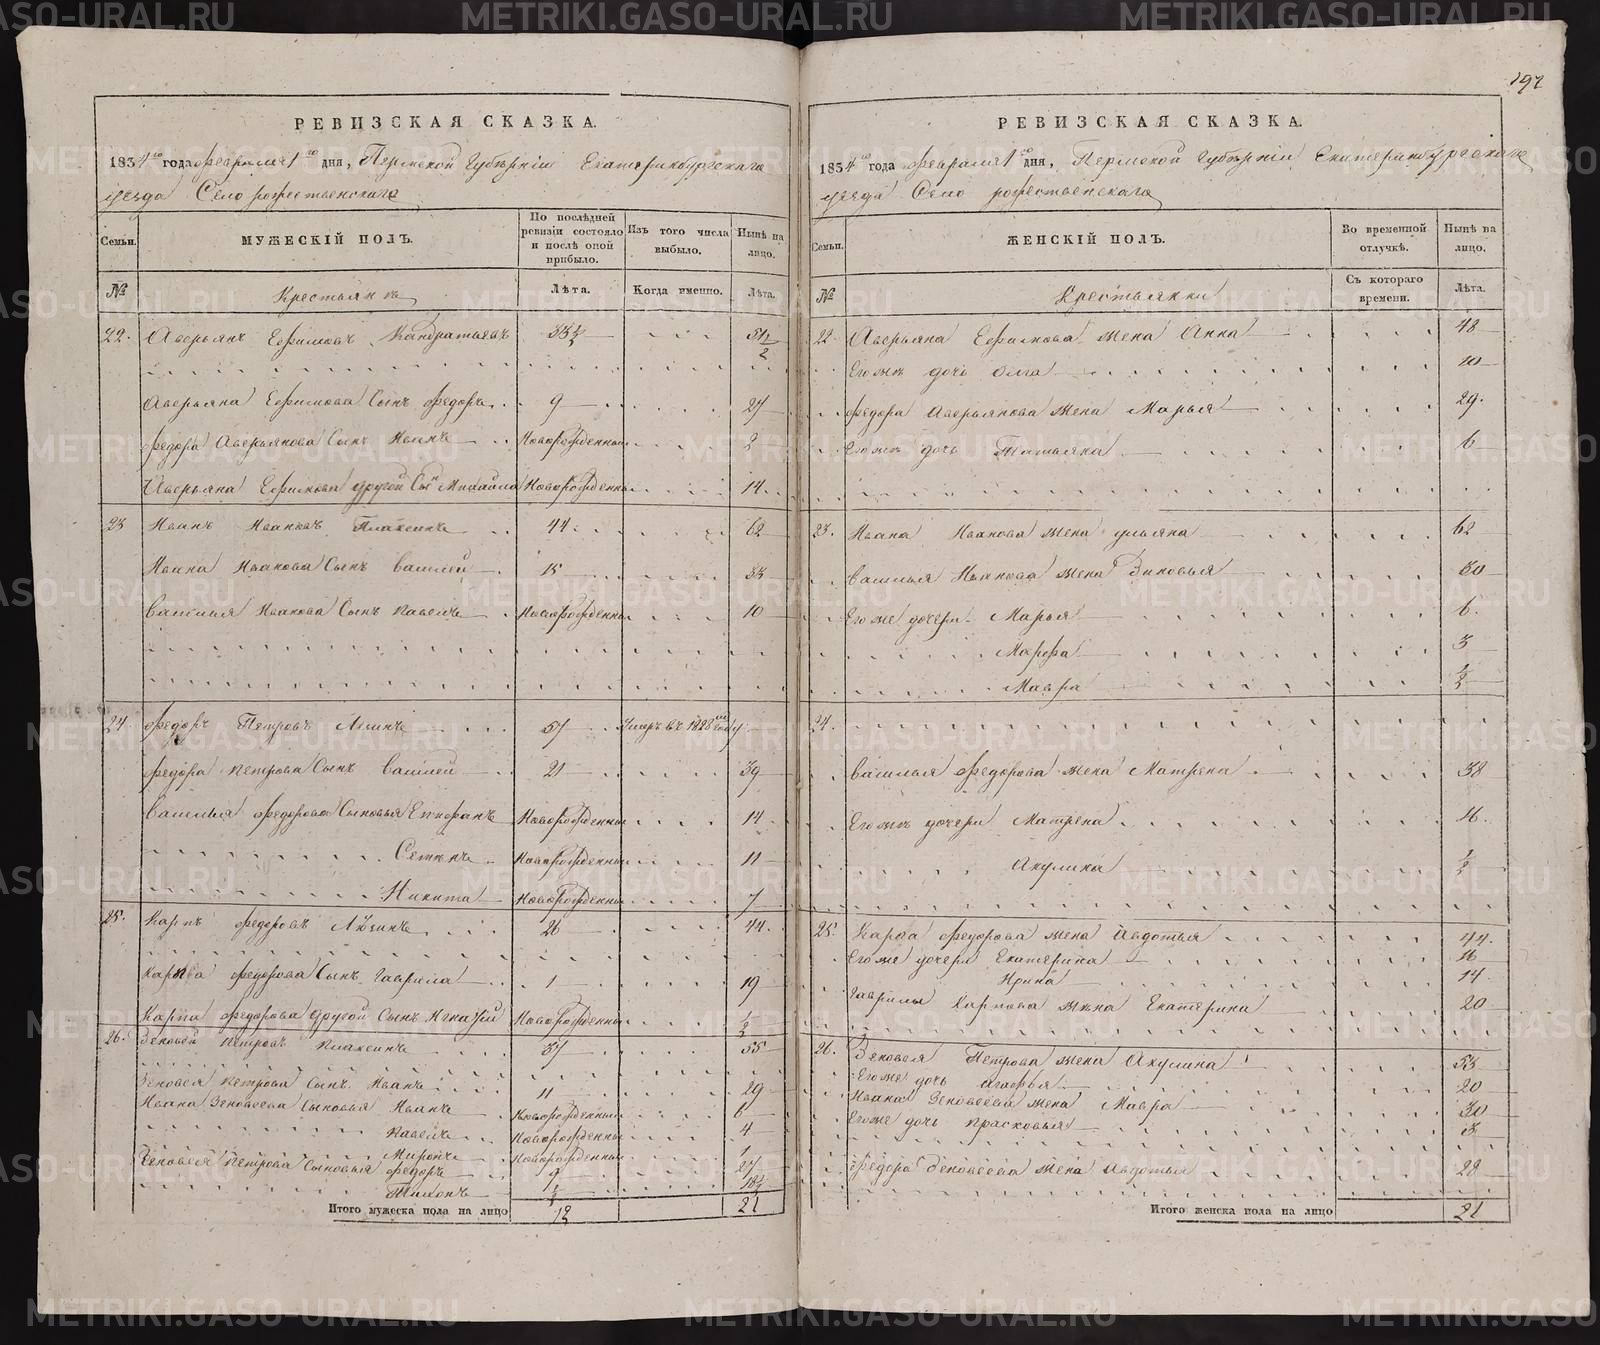 197
РЕВИЗСКАЯ СКАЗКА.
1834го года февраля 1го дня, Пермской Губѣрніи Екатеринбургскаго
уезда Село рожественскаго
Семьи.
МУЖЕСКІЙ ПОЛЪ.
По послѣдней ревизіи состояло и послѣ оной прибыло.
Изъ того числа выбыло.
Нынѣ на лицо.
№
Крестьянъ
Лѣта.
Когда именно.
Лѣта.
22. Аверьянъ Ефимовъ Кандратьевъ 33½ 51½
Аверьяна Ефимова Сынъ федоръ 9 27
федора Аверьянова Сынъ Иванъ Новорожденный 2
Аверьяна Ефимова другой Сынъ Михайла Новорожденный 14
23 Иванъ Ивановъ Плаксинъ 44 62
Ивана Иванова Сынъ василей 15 33
василья Иванова Сынъ павелъ Новорожденный 10
24. федоръ Петровъ 57 Умеръ въ 1828м году
федора петрова Сынъ василей 21 39
василья федорова Сыновья Епифанъ Новорожденный 14
Степанъ Новорожденный 11
Никита Новорожденный 7
25. карпъ федоровъ 26 44
карпа федорова Сынъ гаврила 1 19
карпа федорова другой Сынъ Игнатий Новорожденный ½
26. Зеновей петровъ плаксинъ 37 55
Зеновея петрова сынъ Иванъ 11 29
Ивана Зеновеева сыновья Иванъ Новорожденный 6
павелъ Новорожденный 4
Миронъ Новорожденный 1
Зеновея петрова сыновья федоръ 9 27
Тихонъ ½ 18½
Итого мужеска пола на лицо 12 21
РЕВИЗСКАЯ СКАЗКА.
1834го года февраля 1го дня, Пермской Губѣрніи Екатеринбургскаго
уезда Село рожественскаго
Семьи.
ЖЕНСКІЙ ПОЛЪ.
Во временной отлучкѣ.
Нынѣ на лицо.
№
Крестьянки
Съ котораго времени.
Лѣта.
22 Аверьяна Ефимова жена Анна 48
Его жъ дочь Олга 10
федора Аверьянова жена Марья 29
Его жъ дочь Татьяна 6
23. Ивана Иванова жена ульяна 62
василья Иванова жена Зиновья 30
Его же дочери Марья 6
Марфа 3
Мавра ½
24.
василья федорова жена Матрена 38
Его жъ дочери Матрена 16
Акулина ½
25. Карпа федорова жена Авдотья 44
Его же дочери Екатерина 16
Ирина 14
Гаврилы карпова жена Екатерина 20
26. Зеновея Петрова жена Акулина 53
Его же дочь Агафья 20
Ивана Зеновеева жена Мавра 30
Его же дочь прасковья 3
федора Зеновеева жена Авдотья 28
Итого женска пола на лицо 21
METRIKI.GASO-URAL.RU